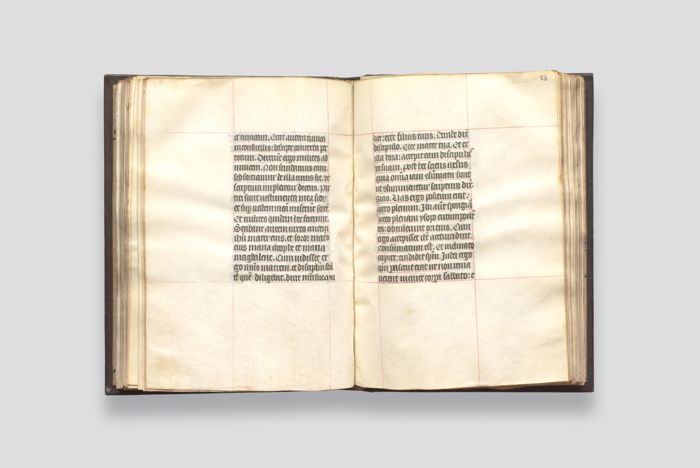 et tunicam. Erat autem tunica
inconsutilis: desuper contexta per
totum. Dixerunt ergo milites ad
inuicem. Non scindamus eam
sed sortiamur de illa cuius sit. ut
scriptura impleretur dicens. Par
titi sunt uestimenta mea sibi:
et sup uestem mea miserut sorte.
Et milites quidem hec fecerunt.
Stabant autem iuxta crucem
ihu mater eius. et soror matris
eius maria cleophe et maria
magdalene. Cum uidisset er
go ihus matrem. et discipulu sta
te que diligebat. dicit matri sue mu
lier: ecce filius tuus. Deinde dix
discipulo. Ecce mater tua. Et ex
illa hora: accepit eam discipulus
in suam. Post hec sciens iesus
quia omnia iam consumata sunt
ut consummaretur scriptura dix
sitio. Vas ergo positum erat
aceto plenum. Illi aute spongia
aceto plenam ysopo circumponen
tes: obtulerunt ori eius. Cum
ergo accepisset ihc acetu dixit
Consummatum est. Et inclinato
capite: tradidit spm. Iudei ergo
qm parasceue erat ut non rema
nerent in cruce corpora sabbato: e